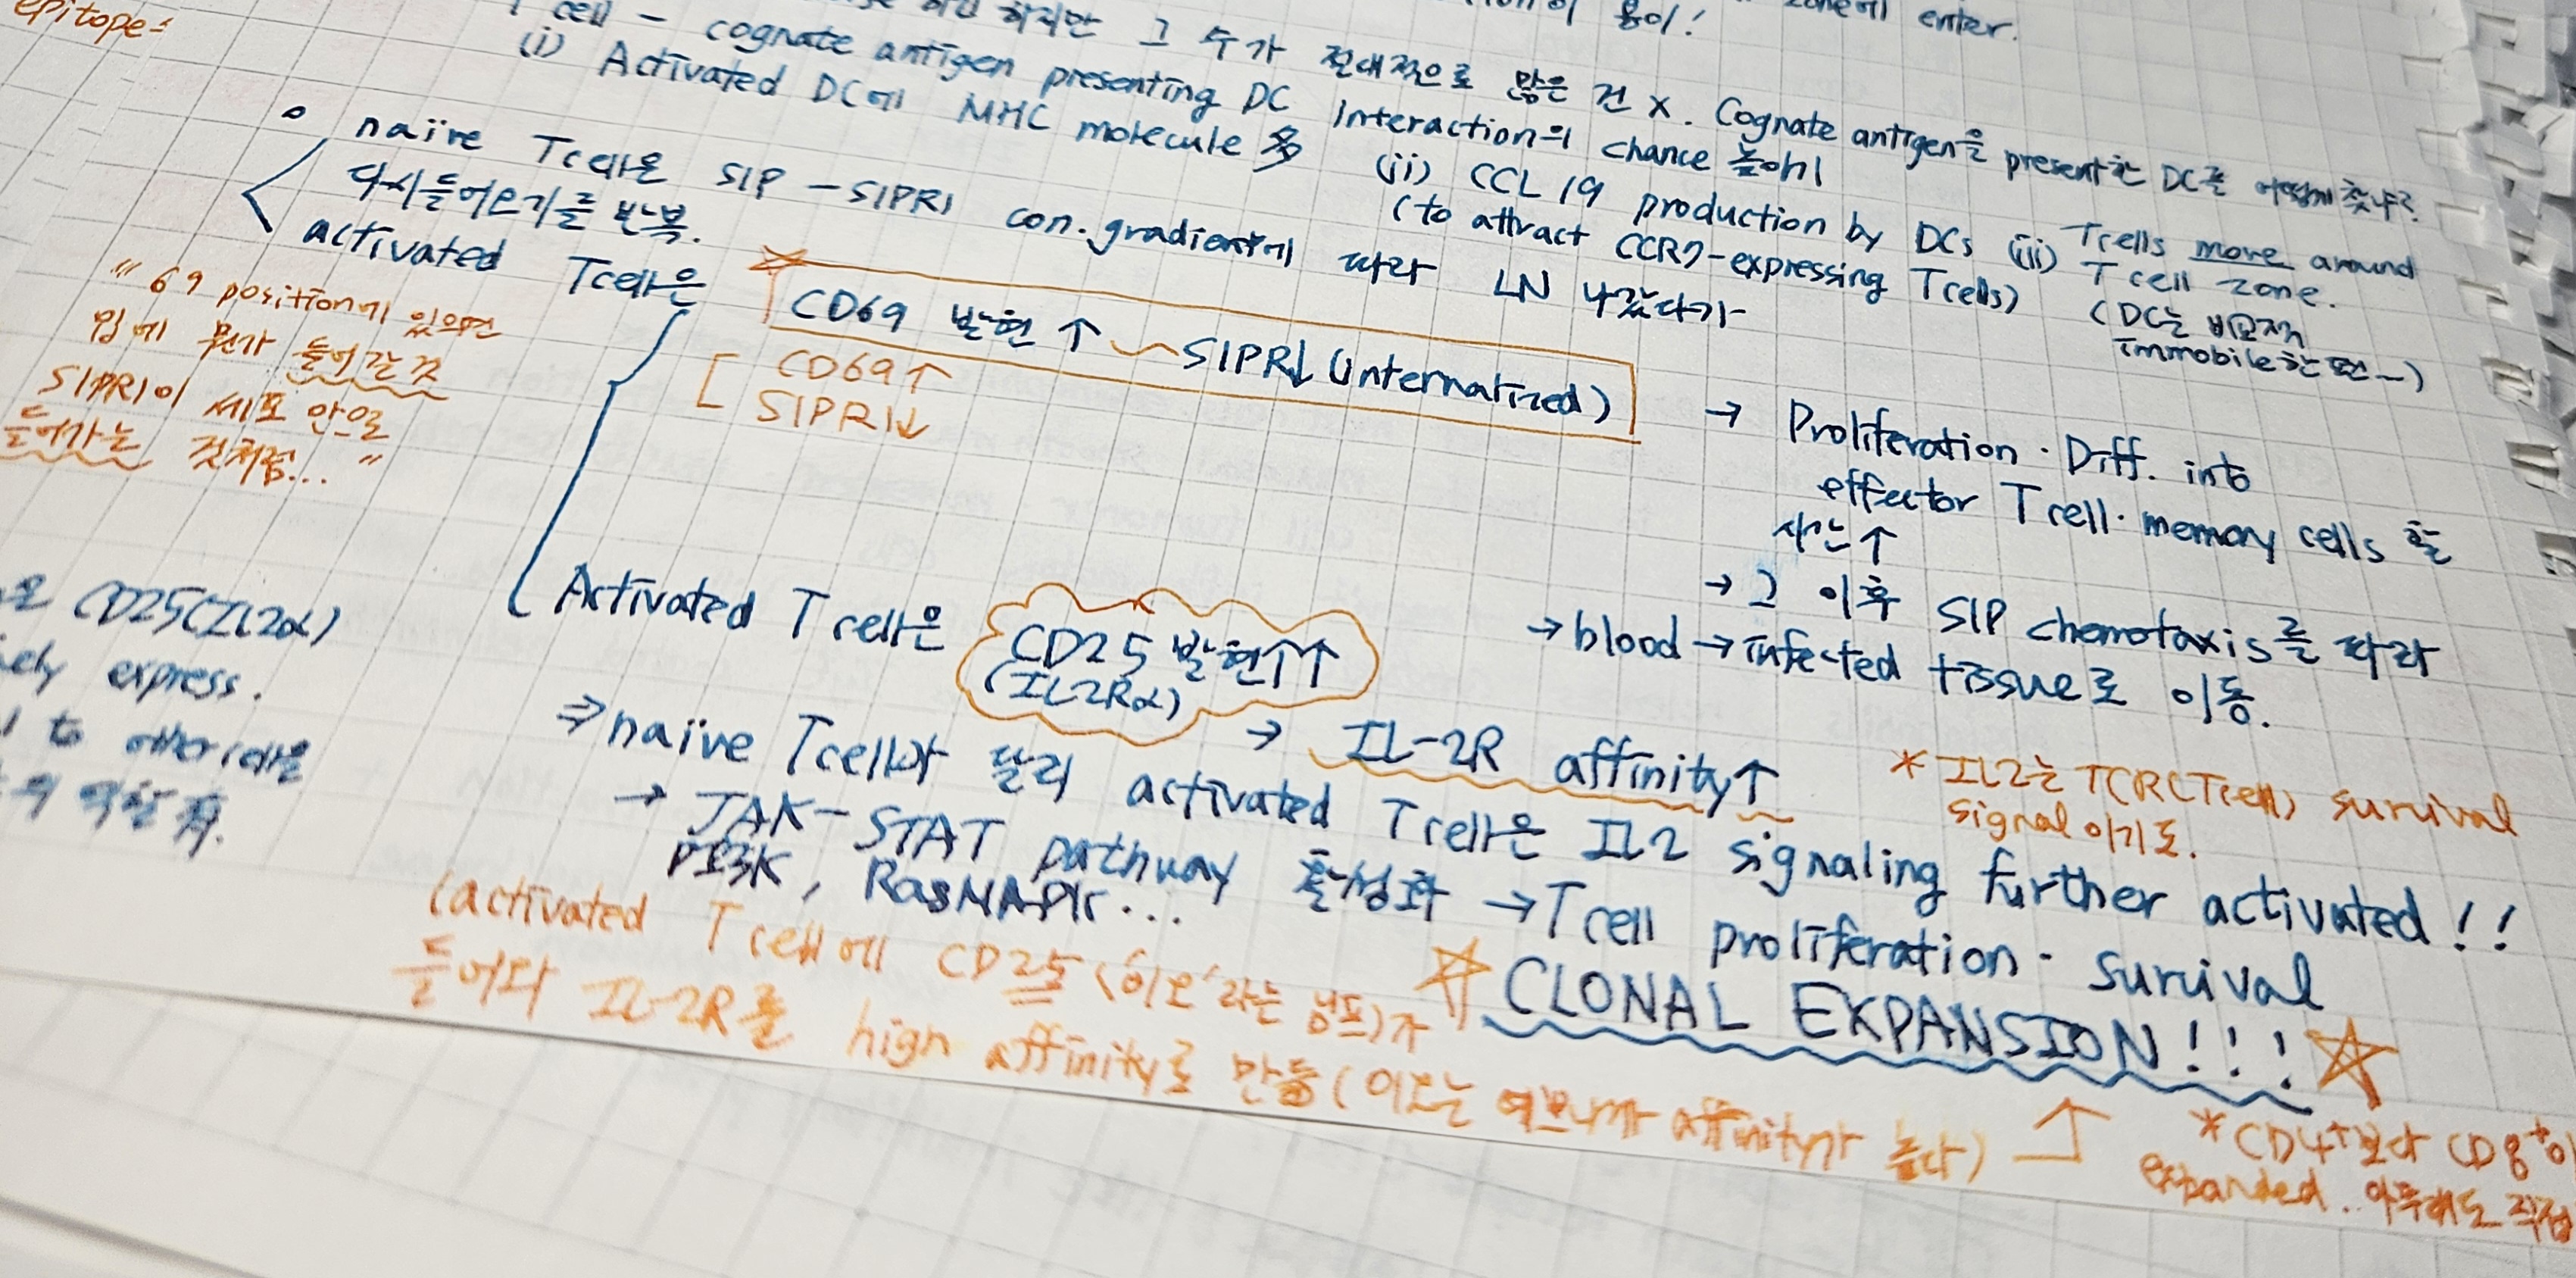 epitope=
하지만 그 수가 절대적으로 많은 건 x. Cognate antigen을 present한 DC를 어떻게 찾냐?
enter.
cell - cognate antigen presenting DC interaction의 chance 높이
(i) Activated DC에 MHC molecule 多 (ii) CCL 19 production by DCs (iii) Tcells move around
(to attract CCR7-expressing Tcells)
T cell zone.
(DC는 비교적
immobile한 편-)
naïve Tcell은 S1P - S1PR1 con.gradient에 따라 LN 나갔다가
다시들어오기를 반복.
activated Tcell은
CD69 발현 ↑ S1PR↓ (internalized)
[ CD69↑
S1PR1↓
"69 position에 있으면
입에 뭔가 들어간 것
S1PR1이 세포 안으로
들어가는 것처럼..."
→ Proliferation · Diff. into
effector Tcell · memory cells 할
시간↑
→ 그 이후 S1P chemotaxis를 따라
→ blood → infected tissue로 이동.
은 CD25(IL2α)
ely express.
to other cell을
의 역할
Activated T cell은 CD25 발현↑↑
(IL2Rα)
→ IL-2R affinity↑
* IL2는 TCR(Tcell) survival
signal 이기도.
⇒ naïve Tcell과 달리 activated Tcell은 IL2 signaling further activated!!
→ JAK-STAT pathway 활성화 → Tcell proliferation · survival
PI3K, RasMAPK...
CLONAL EXPANSION!!!
(activated Tcell에 CD25('이오'라는 님프)가
들어와 IL-2R를 high affinity로 만듦(이오는 예쁘니까 affinity가 높다)
* CD4+보다 CD8+이
expanded.. 아무래도 직접